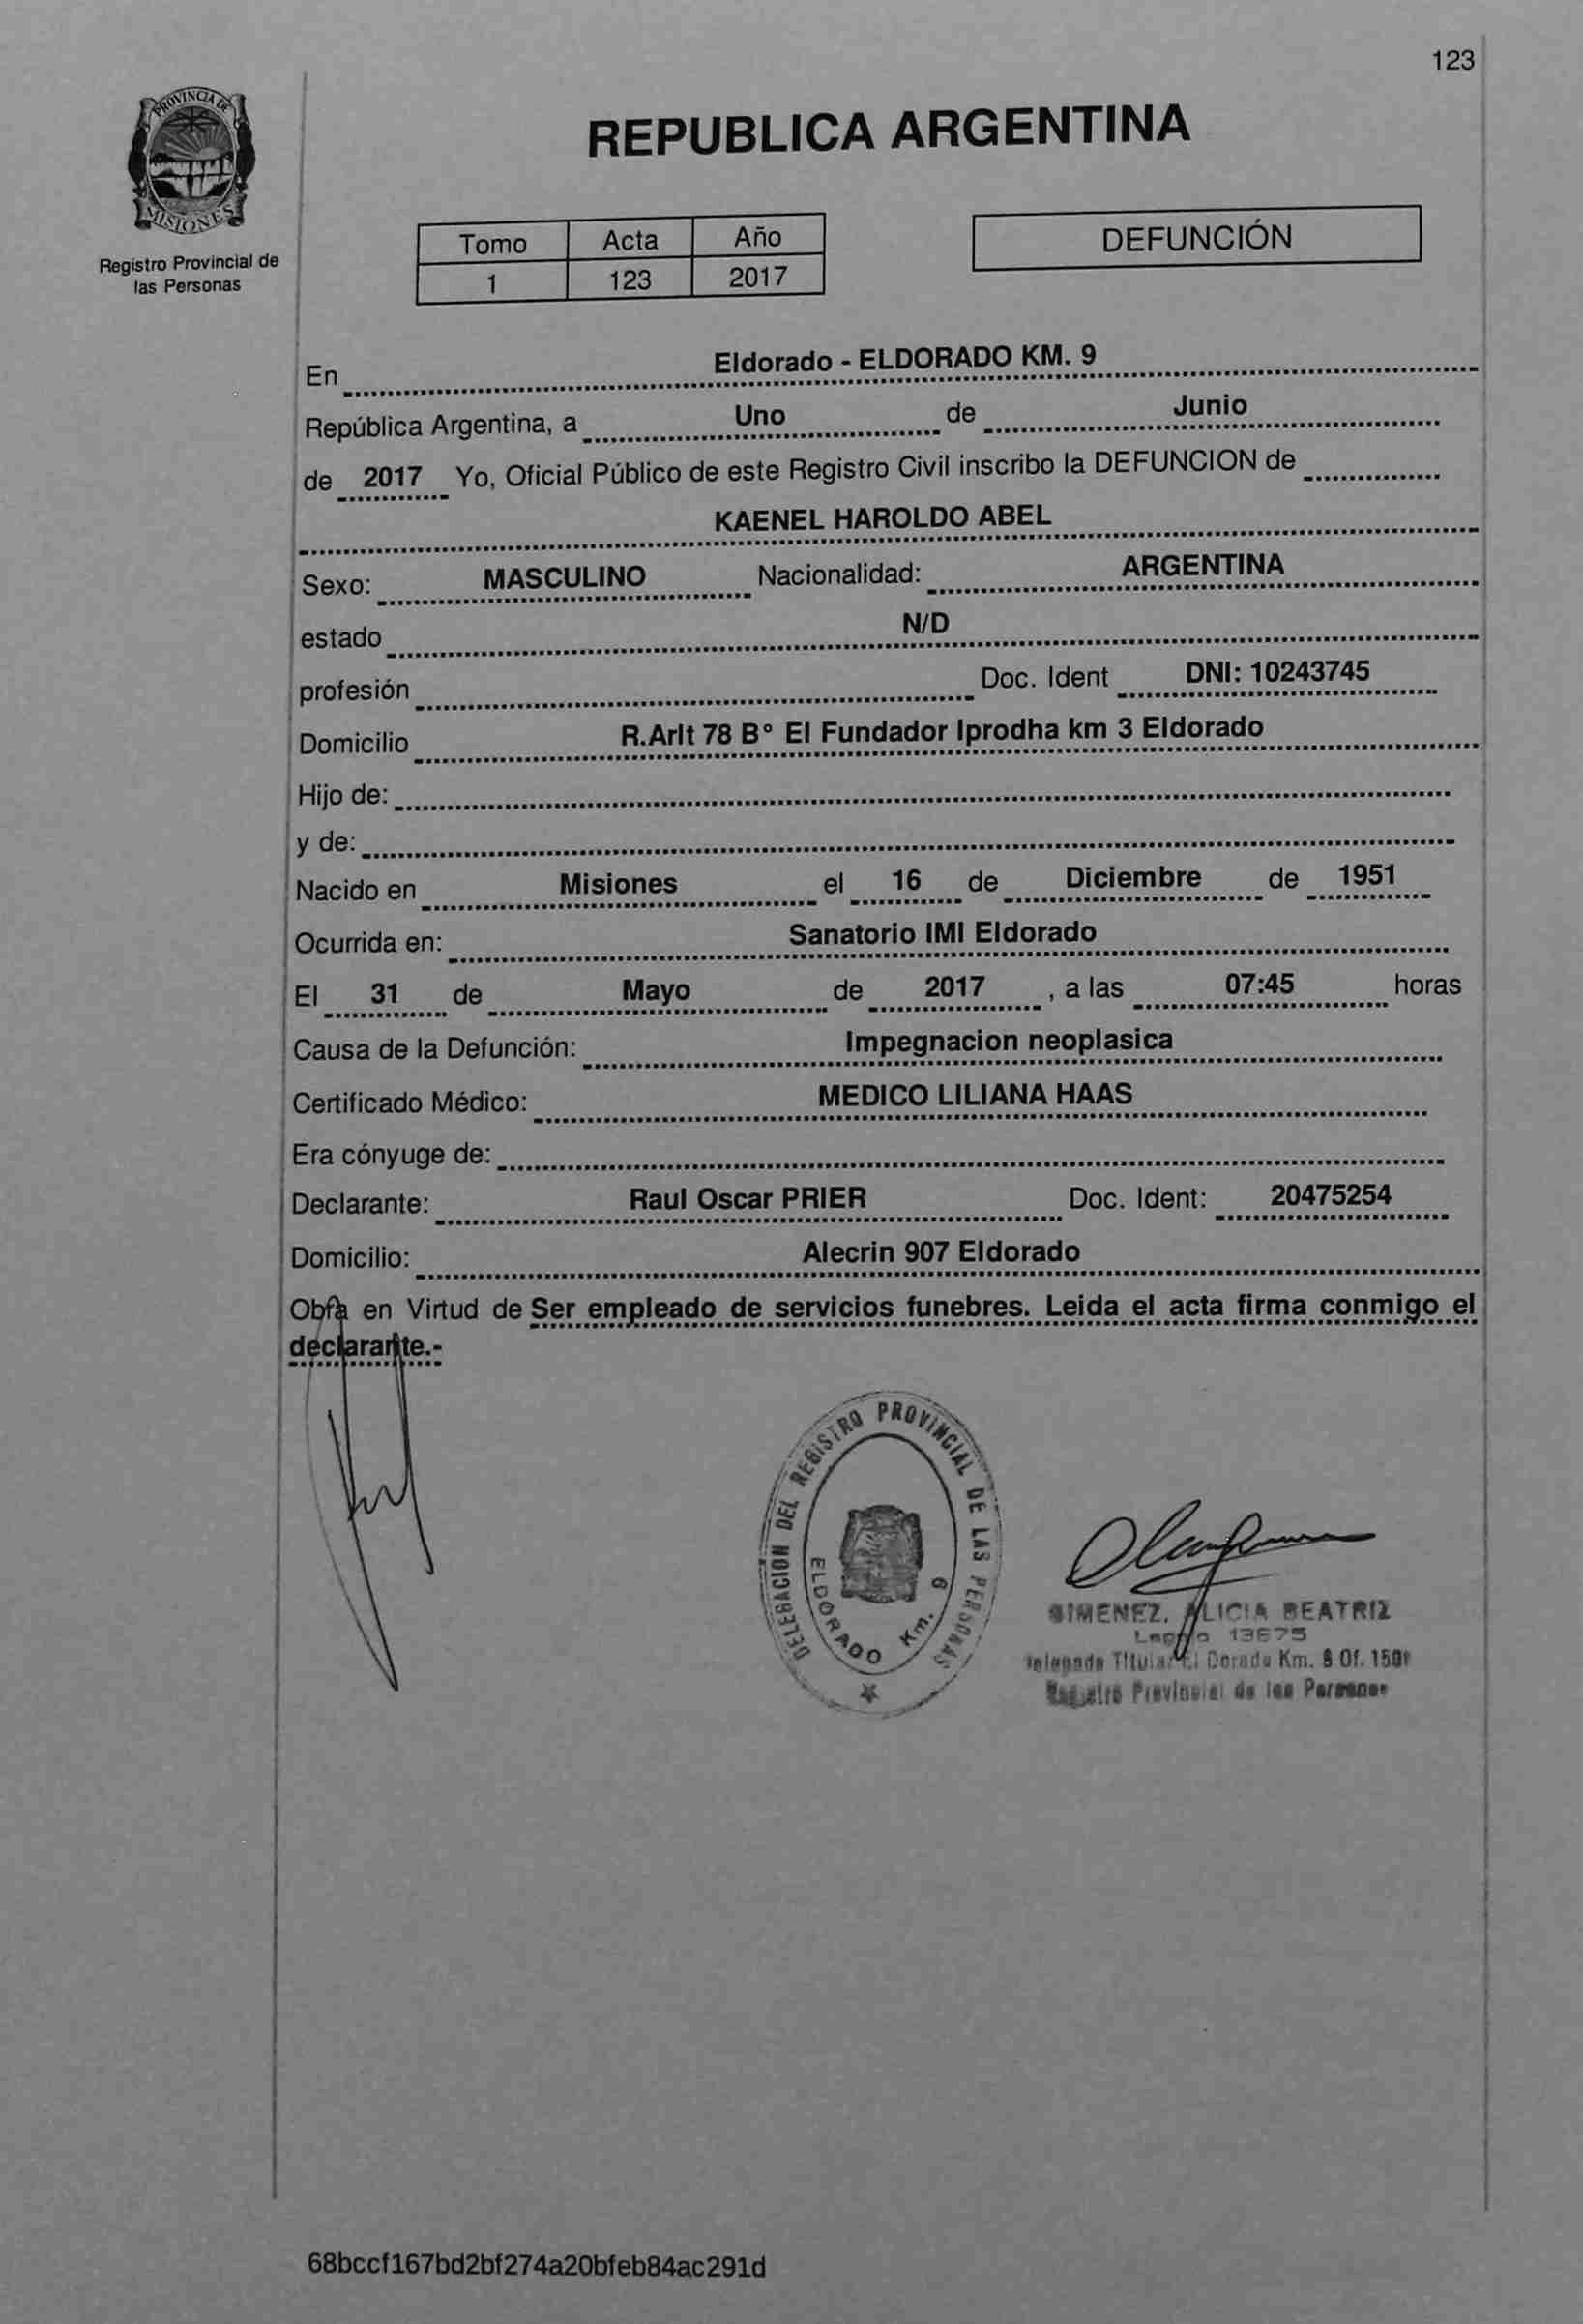 123
PROVINCIA DE
MISIONES
Registro Provincial de
las Personas
REPUBLICA ARGENTINA
Tomo Acta Año
1 123 2017
DEFUNCIÓN
En Eldorado - ELDORADO KM. 9
República Argentina, a Uno de Junio
de 2017 Yo, Oficial Público de este Registro Civil inscribo la DEFUNCION de
KAENEL HAROLDO ABEL
Sexo: MASCULINO Nacionalidad: ARGENTINA
estado N/D
profesión Doc. Ident DNI: 10243745
Domicilio R.Arlt 78 B° El Fundador Iprodha km 3 Eldorado
Hijo de:
y de:
Nacido en Misiones el 16 de Diciembre de 1951
Ocurrida en: Sanatorio IMI Eldorado
El 31 de Mayo de 2017 , a las 07:45 horas
Causa de la Defunción: Impegnacion neoplasica
Certificado Médico: MEDICO LILIANA HAAS
Era cónyuge de:
Declarante: Raul Oscar PRIER Doc. Ident: 20475254
Domicilio: Alecrin 907 Eldorado
Obra en Virtud de Ser empleado de servicios funebres. Leida el acta firma conmigo el
declarante.-
DELEGACION DEL REGISTRO PROVINCIAL DE LAS PERSONAS
ELDORADO Km. 9
GIMENEZ, ALICIA BEATRIZ
Titular El Dorado Km. Of.
Registro Provincial de las Personas
68bccf167bd2bf274a20bfeb84ac291d